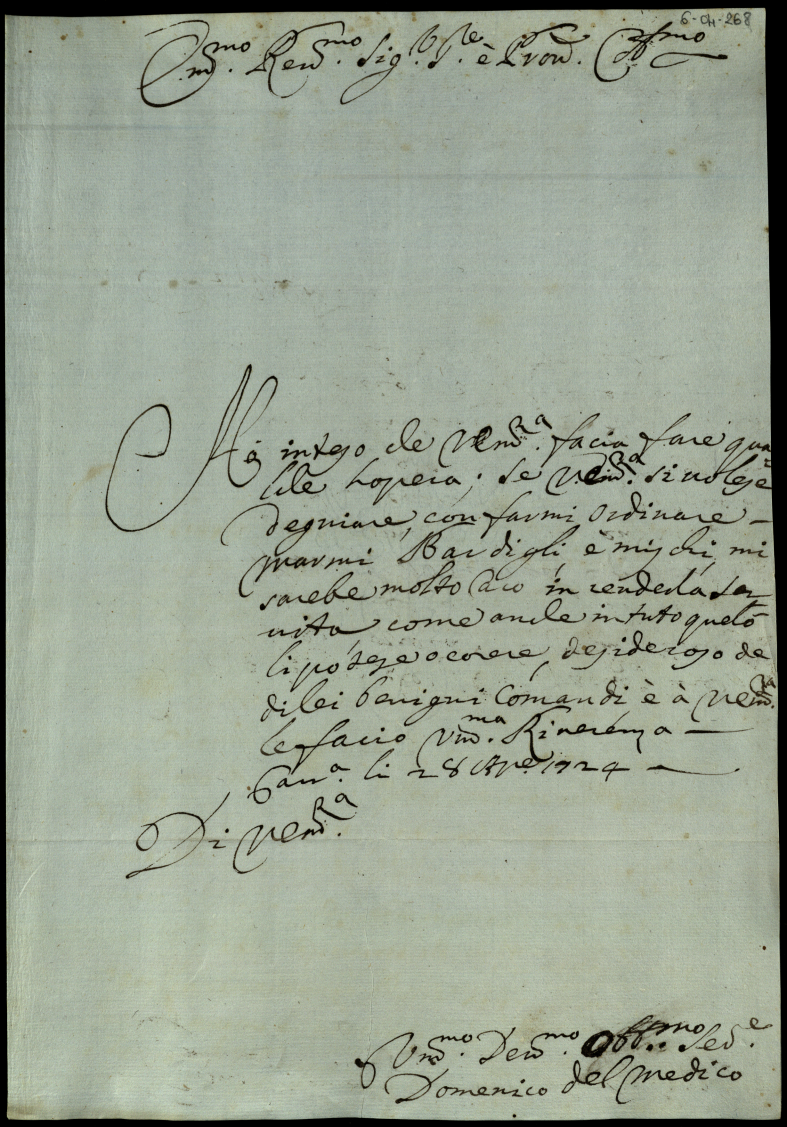 6-CH-268
Ill.mo Rev.mo Sig.r S.re è Pron. Col.mo
Hò inteso che V.S. Ill.ma Rev.ma facia fare qua=
lche hopera; se V.S. Rev.ma si volese
degniare, con farmi ordinare –
marmi Bardigli, è mischi, mi
sarebe molto caro in renderla ser=
vita come anche in tuto quelo
li potese ocorere, desideroso de
di lei benigni Comandi è à V.S. Rev.ma
le facio um.ma Riverenza –
Carr.a li 28 1724 –
Di V.S. Rev.ma
Um.mo Dev.mo Obb.mo Ser.e
Domenico del Medico